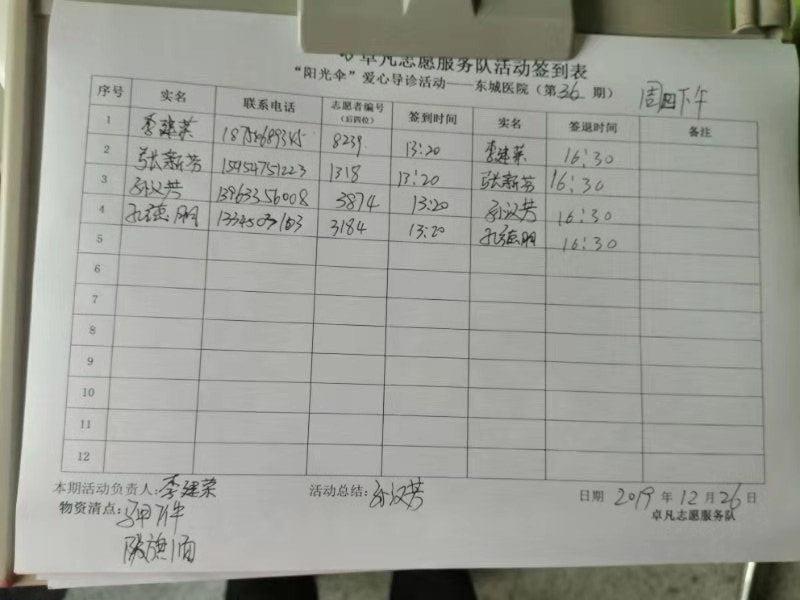 卓凡志愿服务队活动签到表
“阳光伞”爱心导诊活动——东城医院（第36期） 周四下午
序号 实名 联系电话 志愿者编号（后四位） 签到时间 实名 签退时间 备注
1 李建荣 18754689345 8239 13:20 李建荣 16:30
2 张新芳 15954751223 1318 13:20 张新芳 16:30
3 孙汉芳 13963356008 3874 13:20 孙汉芳 16:30
4 孔德明 3184 13:20 孔德明 16:30
5
6
7
8
9
10
11
12
本期活动负责人:李建荣 活动总结:孙汉芳 日期 2019 年 12 月 26 日
物资清点: 卓凡志愿服务队
队旗1面